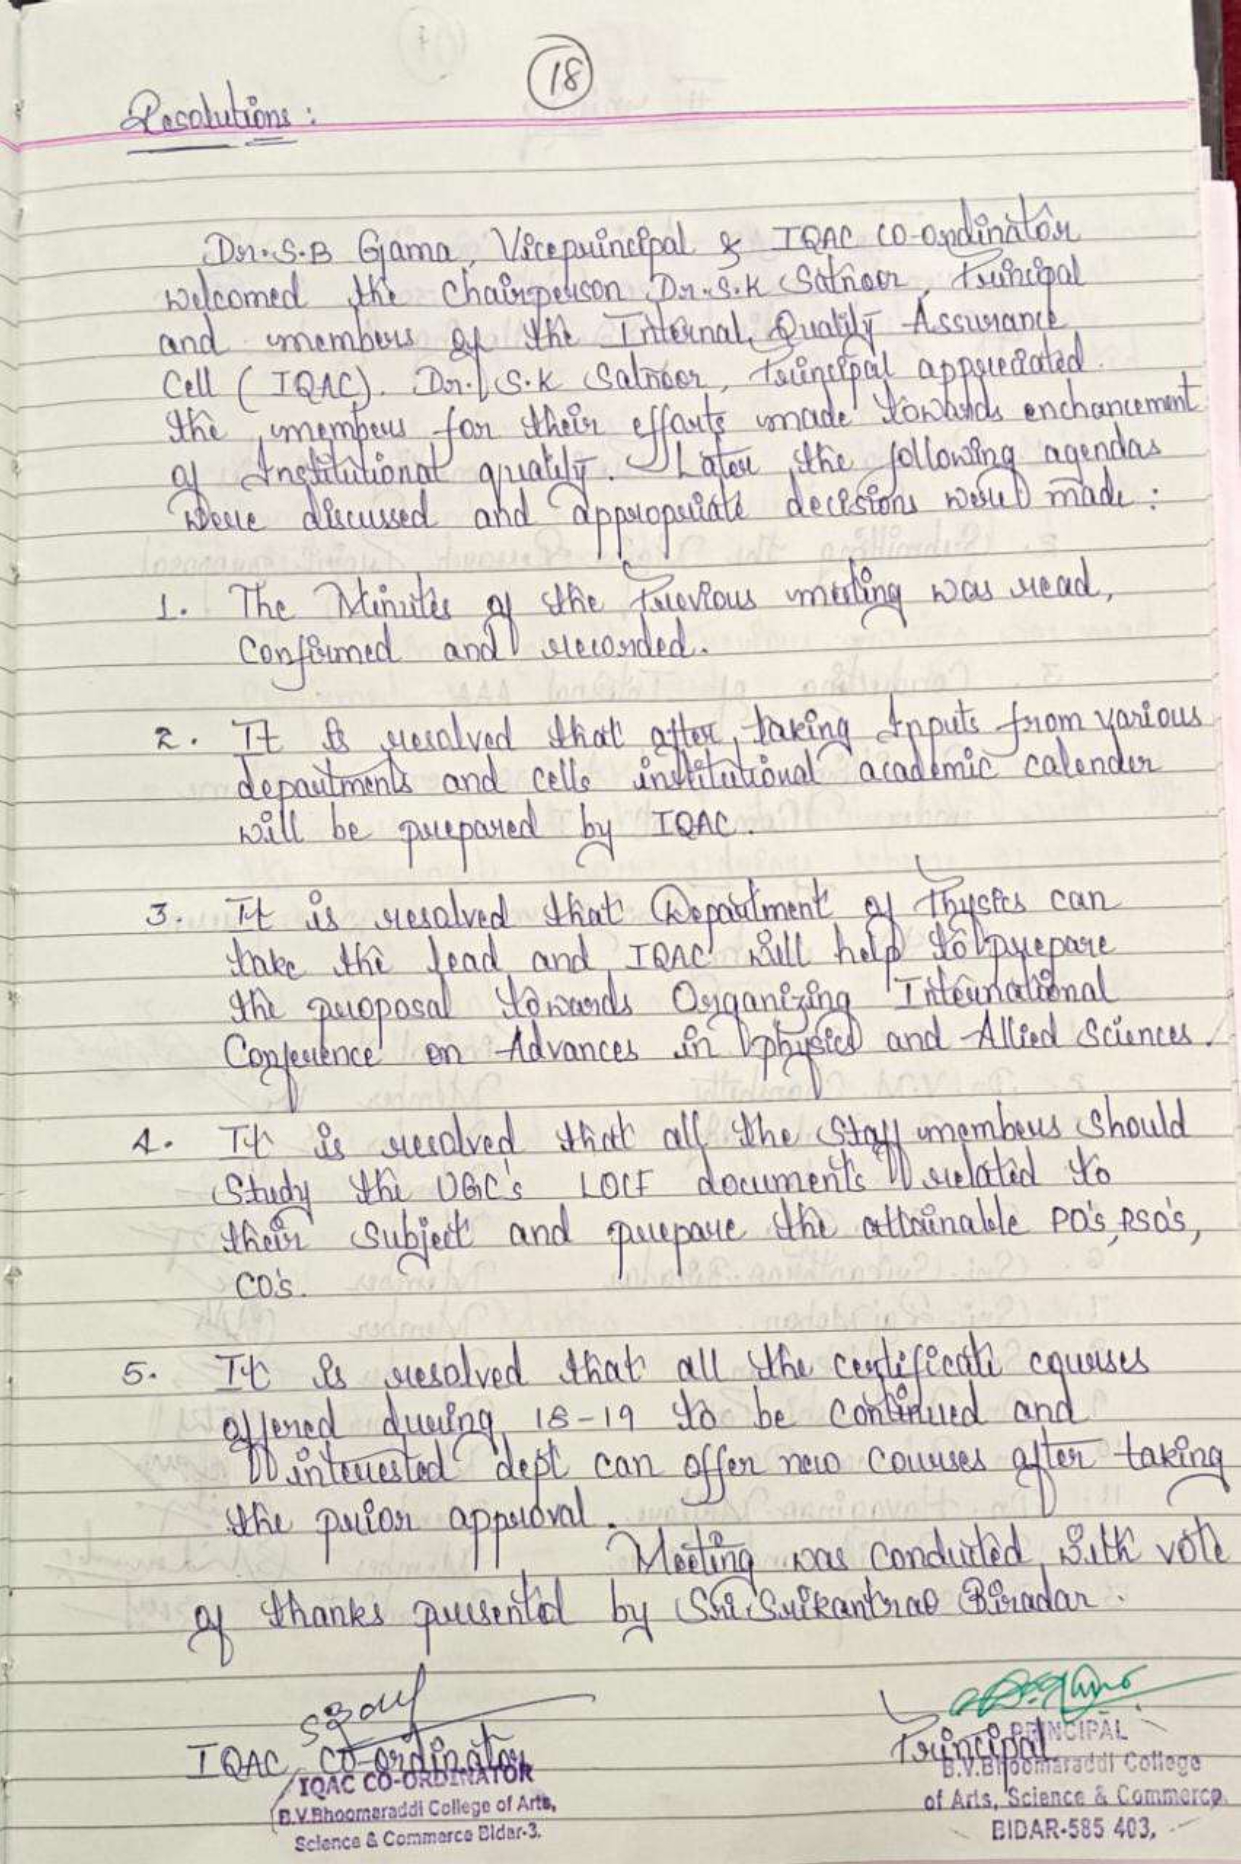 18
Resolutions:
Dr. S.B Gama, Viceprincipal & IQAC CO-ordinator
welcomed the Chairperson Dr. S.K Satnoor, Principal
and members of the Internal Quality Assurance
Cell (IQAC). Dr. S.K Satnoor, Principal appreciated
the members for their efforts made towards enchancement
of Institutional quality. Later the following agendas
were discussed and appropriate decisions were made:
1. The Minutes of the Previous meeting was read,
Confirmed and recorded.
2. It is resolved that after taking Inputs from various
departments and cells institutional academic calender
will be prepared by IQAC.
3. It is resolved that Department of Physics can
take the lead and IQAC will help to prepare
the proposal towards Organizing International
Conference on Advances in physics and Allied Sciences.
4. It is resolved that all the Staff members should
Study the UGC's LOCF documents related to
their Subject and prepare the attainable PO's, PSO's,
CO's.
5. It is resolved that all the certificate courses
offered during 18-19 to be continued and
interested dept can offer new courses after taking
the prior approval.
Meeting was conducted with vote
of thanks presented by Sri Srikantrao Biradar.
IQAC CO-ordinator
IQAC CO-ORDINATOR
B.V.Bhoomaraddi College of Arts,
Science & Commerce Bidar-3.
Principal
PRINCIPAL
B.V.Bhoomaraddi College
of Arts, Science & Commerce
BIDAR-585 403.